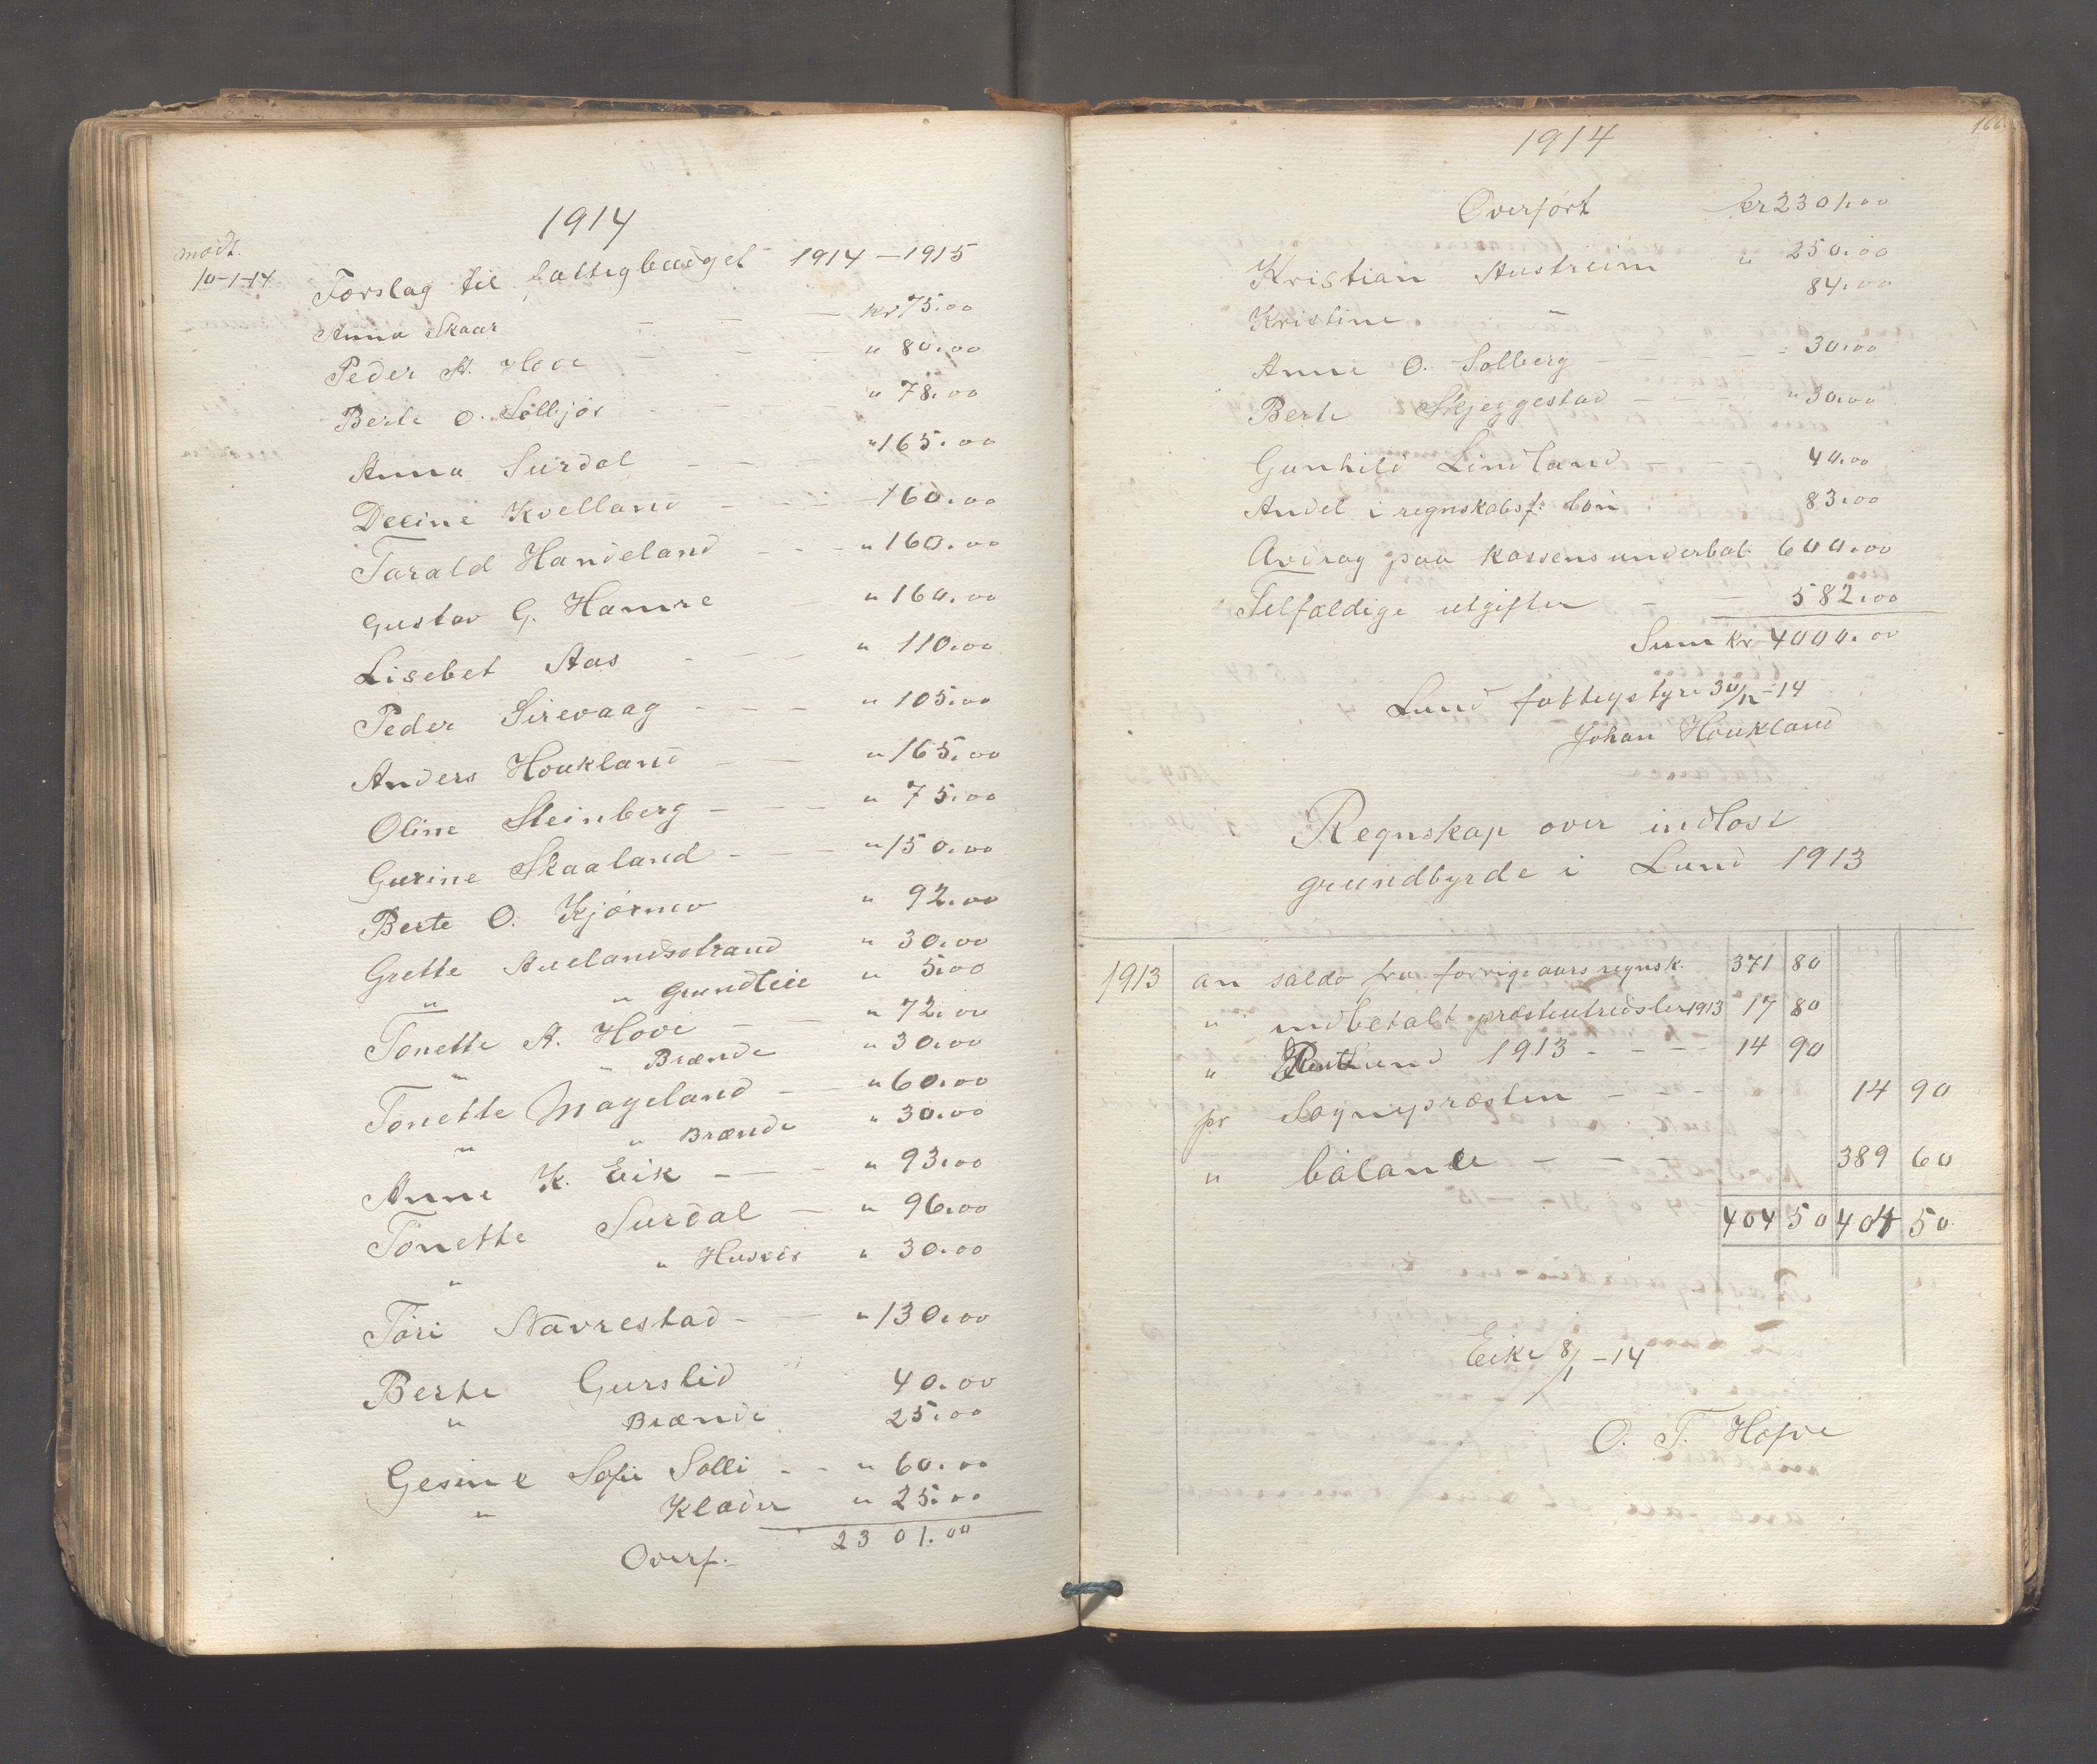 1914
mødt.
10-1-14
Forslag til fattigbudget 1914 — 1915
Anna Skaar — — — kr 75.00
Peder A. Hove — — — " 80.00
Berte O. Solbjør - - - " 78.00
Anna Surdal - - - " 165.00
Kvelland - - - - 160.00
Tarald Handeland - - - " 160.00
Gustav G. Hamre - " 160.00
Lisebet Aas - - - " 110.00
Peder Sirevaag - - - " 105.00
Anders Houkland - - " 165.00
Oline Steinberg - - - " 75.00
Gurine Skaaland - - - " 150.00
Berte O. " 92.00
Grette Auelandsstrand " 30.00
" " Grundleie " 5.00
Tonette A. Hove - - " 72.00
" " Brænde " 30.00
Tonette Mageland - - " 60.00
" " Brænde " 30.00
Anne K. Eik - - - " 93.00
Tonette Surdal - " 96.00
" " Husleie " 30.00
Tori Navrestad - - " 130.00
Berte Gurslid 40.00
" Brænde 25.00
Gesine Sofie Solli - - " 60.00
" Klæder " 25.00
Overf. 2301.00
166
1914
Overført kr 2301.00
Kristian Austreim " 250.00
Kristine " 84.00
Anne O. Solberg - - - - 30.00
Berte Skjeggestad - - - " 30.00
Gunhild Lindland - - - 40.00
Andel i regnskabsf: løn 83.00
Avdrag paa kassens underbal. 600.00
Tilfældige utgifter - - 582.00
Sum kr 4000.00
Lund fattigstyre 30/12-14
Johan Houkland
Regnskap over indløst
grundbyrde i Lund 1913
1913 an saldo fra forrige aars regnsk. 371 80
" indbetalt præsteutredsler 1913 17 80
" Lund 1913 - - - - 14 90
pr Sognepræsten - - - - 14 90
" balance - - - - 389 60
404 50 404 50
Eike 8/1 -14
O. T. Hofve